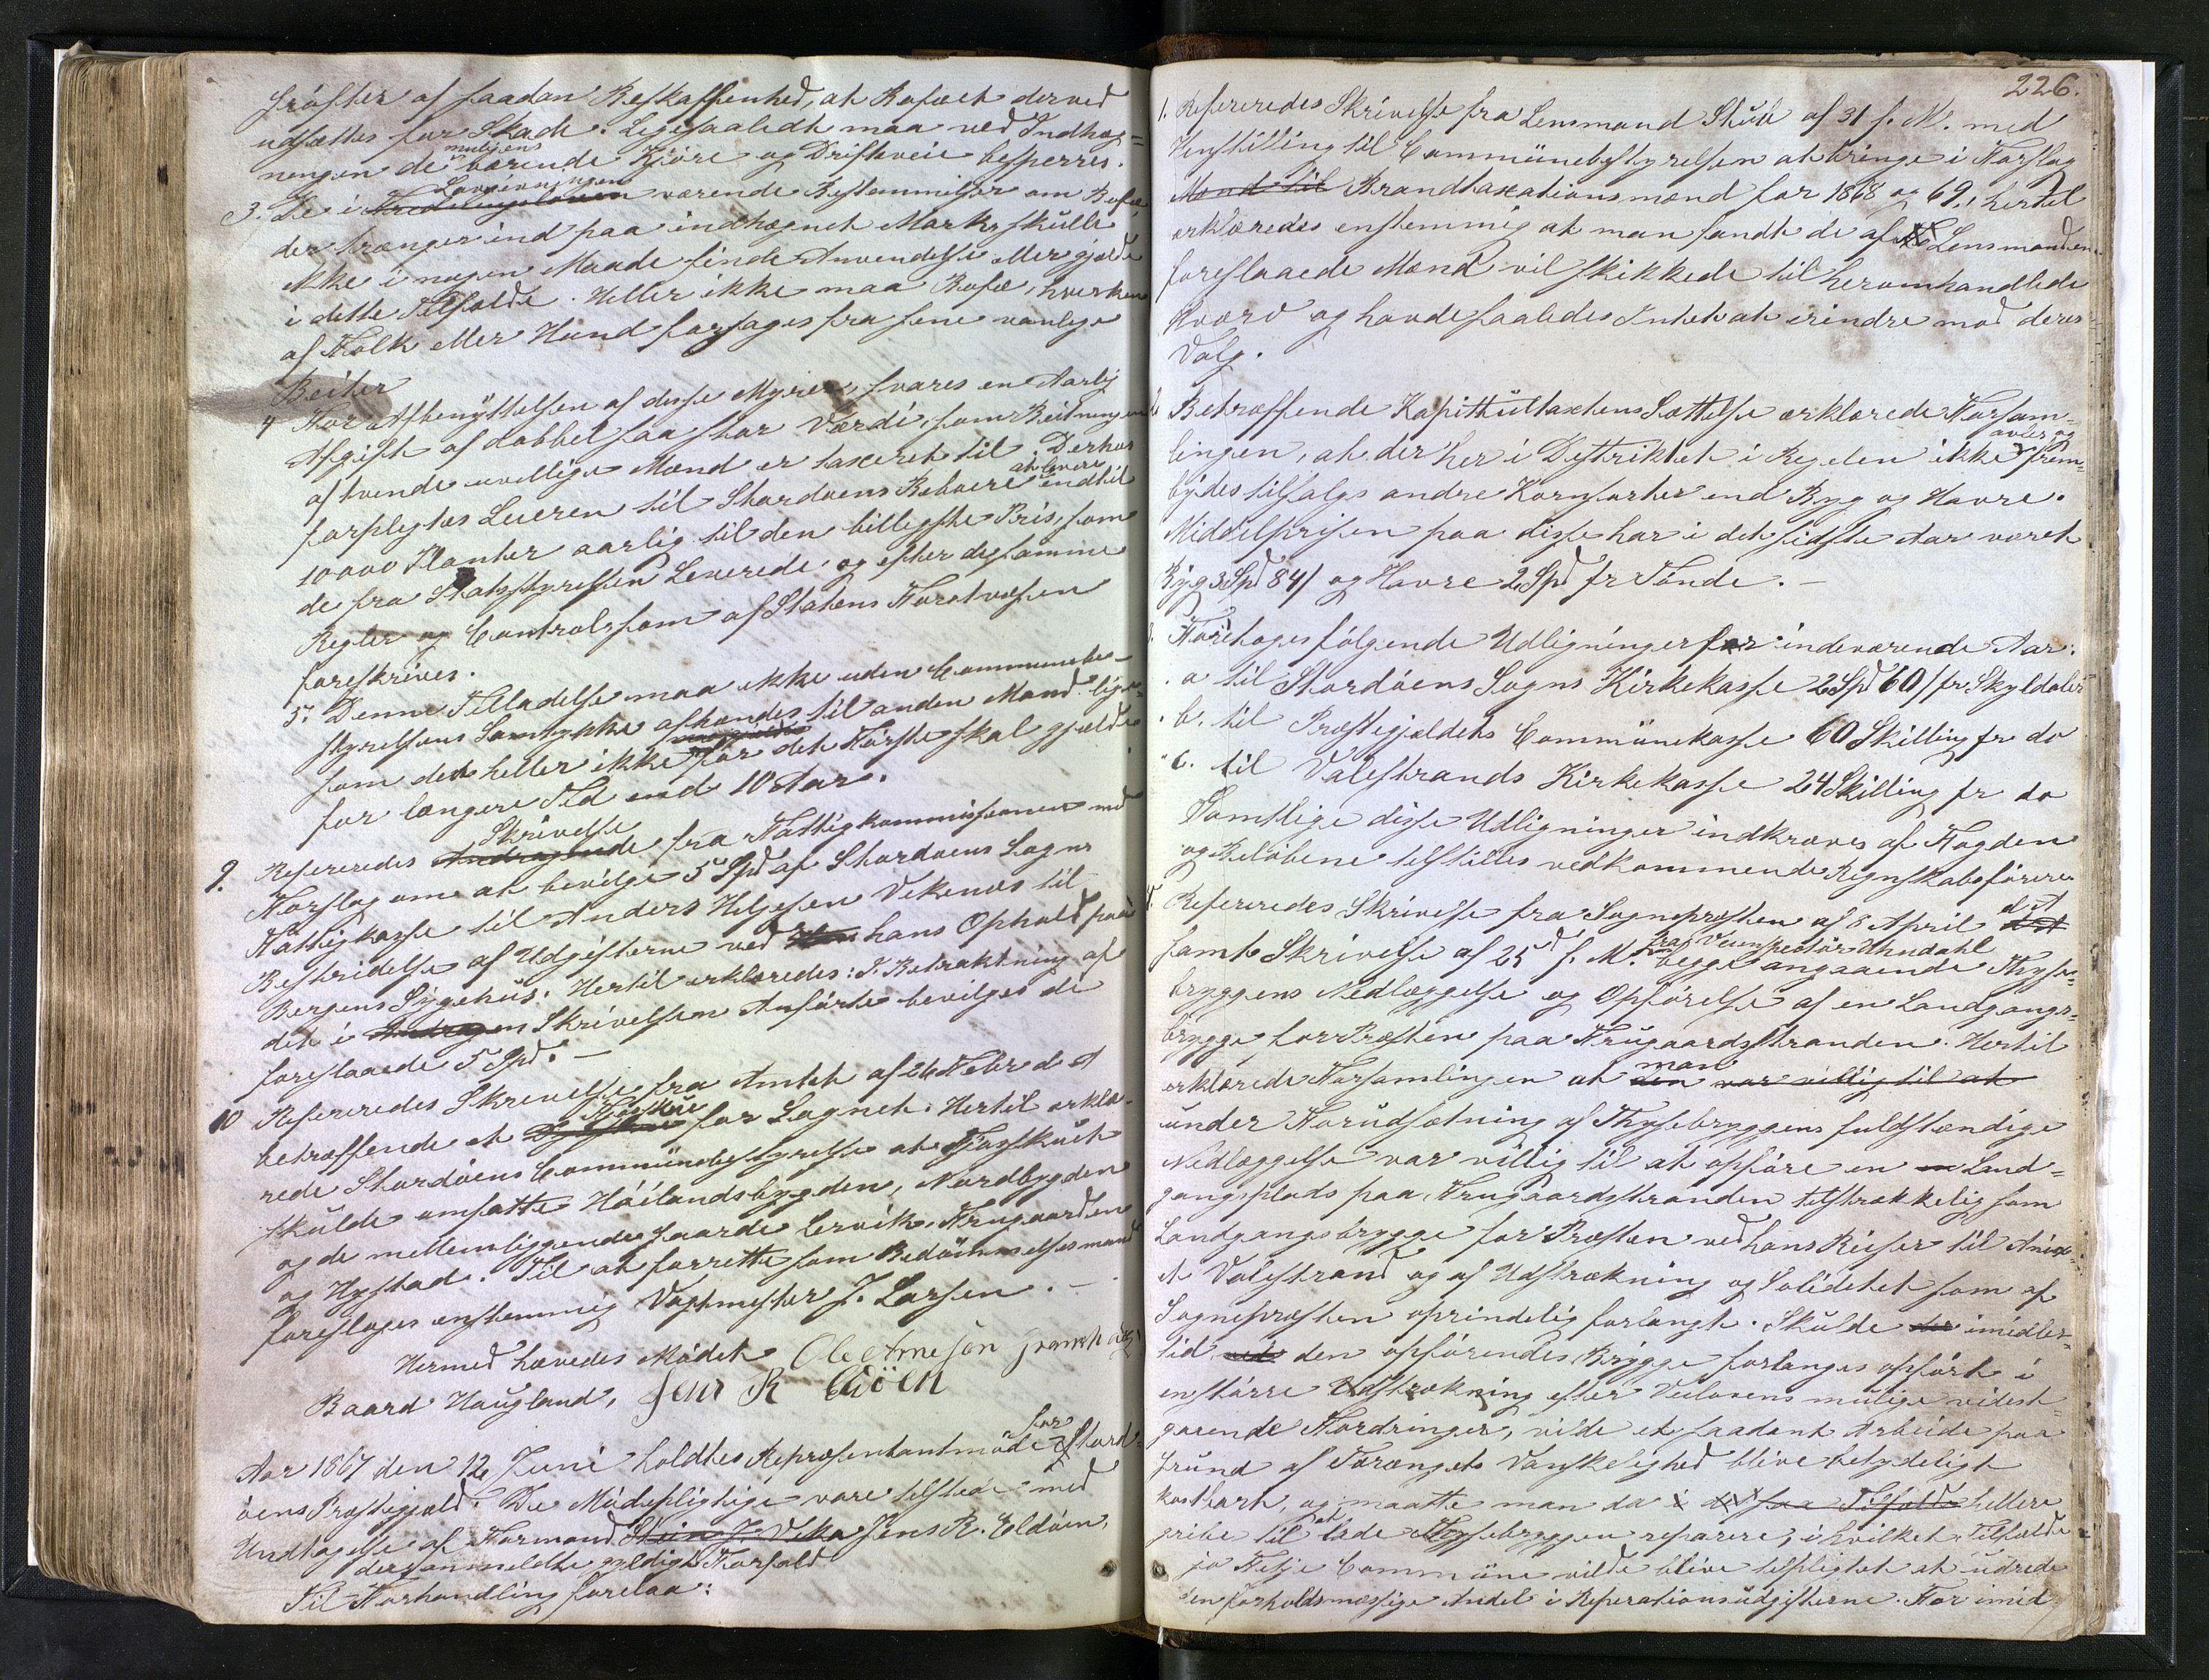 Grøfter af saadan Beskaffenhed, at Bufæet derved
udsættes for Skade. Ligesaaledt maa ved Indhæg-
muligens
ningen de værende Kjøre og Driftveie besperres.
Lovgivningen
3. De i Fredningsloven værende Bestemmelser om Bufæ
der trænger ind paa indhægnet Mark, skulle
ikke i nogen Maade finde Anvendelse eller gjælde
i dette Tilfælde. Heller ikke maa Bufæ, hverken
af Folk eller Hund forjages fra sine vanlige
Beiter
4 For Afbenyttelsen af disse Myrer, svares en Aarlig
Afgift af dobbel saa stor Værdi, som Beitningen
af tvende uvillige Mænd er taxeret til. Derhos
at levere
forpligtes Leieren til Stordøens Beboere indtil
10000 Planter aarlig til den billigste Pris, som
de fra Statsstyrelsen Leverede og efter de samme
Regler og Control, som af Statens Forstvæsen
foreskrives.
5. Denne Tilladelse maa ikke uden Communebe-
styrelsens Samtykke afhændes til anden Mand lige-
som den heller ikke for det Første skal gjælde
for længere Tid end 10 Aar.
Skrivelse
9. Refereredes Andragende fra Fattigkommissionen med
Forslag om at bevilge 5 Spd af Stordøens Sogns
Fattigkasse til Anders Helgesen Vekenæs til
Bestridelse af Udgifterne ved hans Ophold paa
Bergens Sygehus. Hertil erklæredes: I Betraktning af
det i Andragen Skrivelsen Anførte bevilges de
foreslaaede 5 Spd. –
10 Refereredes Skrivelse fra Amtet af 26 Febr d A
Tjorskue
betræffende et for Sognet. Hertil erklæ-
rede Stordøens Communebestyrelse at Tjorskuet
skulde omfatte Høilandsbygden, Nordbygden
og de mellemliggende Gaarde Lervik, Frugaarden
og Hystad. Til at forrette som Bedømmelsesmand
foresloges enstemmig Vagtmester J. Larsen. –
Hermed hævedes Mødet Ole Arnesen
Baard Haugland, Jens R Eldøen
for
Aar 1867 den 12 Juni holdtes Repræsentantmøde Stord-
øens Præstegjæld. De Mødepligtige vare tilstede med
Undtagelse af Formand Stein J. Veka Jens R. Eldøen,
der anmeldte gyldigt Forfald
Til Forhandling forelaa:
226.
1. Refereredes Skrivelse fra Lensmand Stub af 31 f. M. med
Henstilling til Communebestyrelsen at bringe i Forslag
Mænd til Brandtaxationsmænd for 1868 og 69., hertil
erklæredes enstemmig at man fandt de af Lensmanden
foreslaaede Mænd vel skikkede til heromhandlede
Hværv og havde saaledes Intet at erindre mod deres
Valg.
2 Betræffende Kapitultaxtens Sættelse erklærede Forsam-
avles og
lingen, at der her i Destriktet i Regelen ikke frem-
bydes tilsalgs andre Kornsorter end Byg og Havre.
Middelprisen paa disse har i det sidste Aar været
Byg 3 Spd 84/ og Havre 2 Spd pr Tønde. –
3. Foretoges følgende Udligninger for indeværende Aar.
a til Stordøens Sogns Kirkekasse 2 Spd 60/ pr Skyldaler
b. til Præstegjældets Communekasse 60 Skilling pr do
c. til Valestrands Kirkekasse 24 Skilling pr do
Samtlige disse Udligninger indkræves af Fogden
og Beløbene tilstilles vedkommende Regnskabsførere
4. Refereredes Skrivelse fra Sognepræsten af 8 April d A
fra Veiinspectør
samt Skrivelse af 25d f. M. begge angaaende Thyse-
bryggens Nedlæggelse og Opførelse af en Landgangs-
brygge for Præsten paa Frugaardsstranden. Hertil
man
erklærede Forsamlingen at den var villig til at
under Forudsætning af Thysebryggens fuldstændige
Nedlæggelse var villig til at opføre en en Land-
gangsplads paa Frugaardsstranden tilstrækkelig som
Landgangsbrygge for Præsten ved hans Reiser til Anex-
et Valestrand og af Udstrækning og Soliditet som af
Sognepræsten oprindelig forlangt. Skulde der imidler-
tid den opførendes Brygge forlanges opført i
en større Udstrækning efter Veilovens mulige videst
gaaende Fordringer, vilde et saadant Arbeide paa
Grund af Terængets Vanskelighed blive betydeligt
kostbart, og maatte man da i det saa Tilfælde hellere
gribe til at lade Thysebryggen reparere, i hvilket Tilfælde
jo Fitje Commune vilde blive tilpligtet at udrede
sin forholdsmæssige Andel i Reperationsudgifterne. For imid